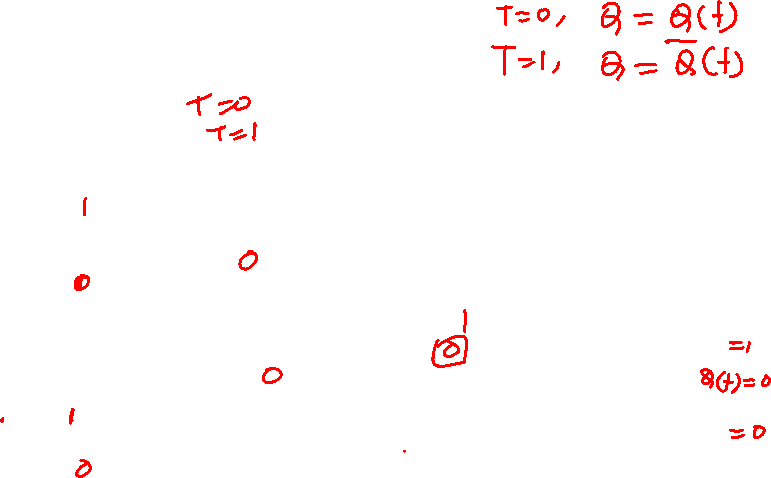 T=0, Q = Q(t)
T=1, Q = Q̅(t)
T=0
T=1
1
0
0
1
0
=1
0
Q(t)=0
1
=0
0